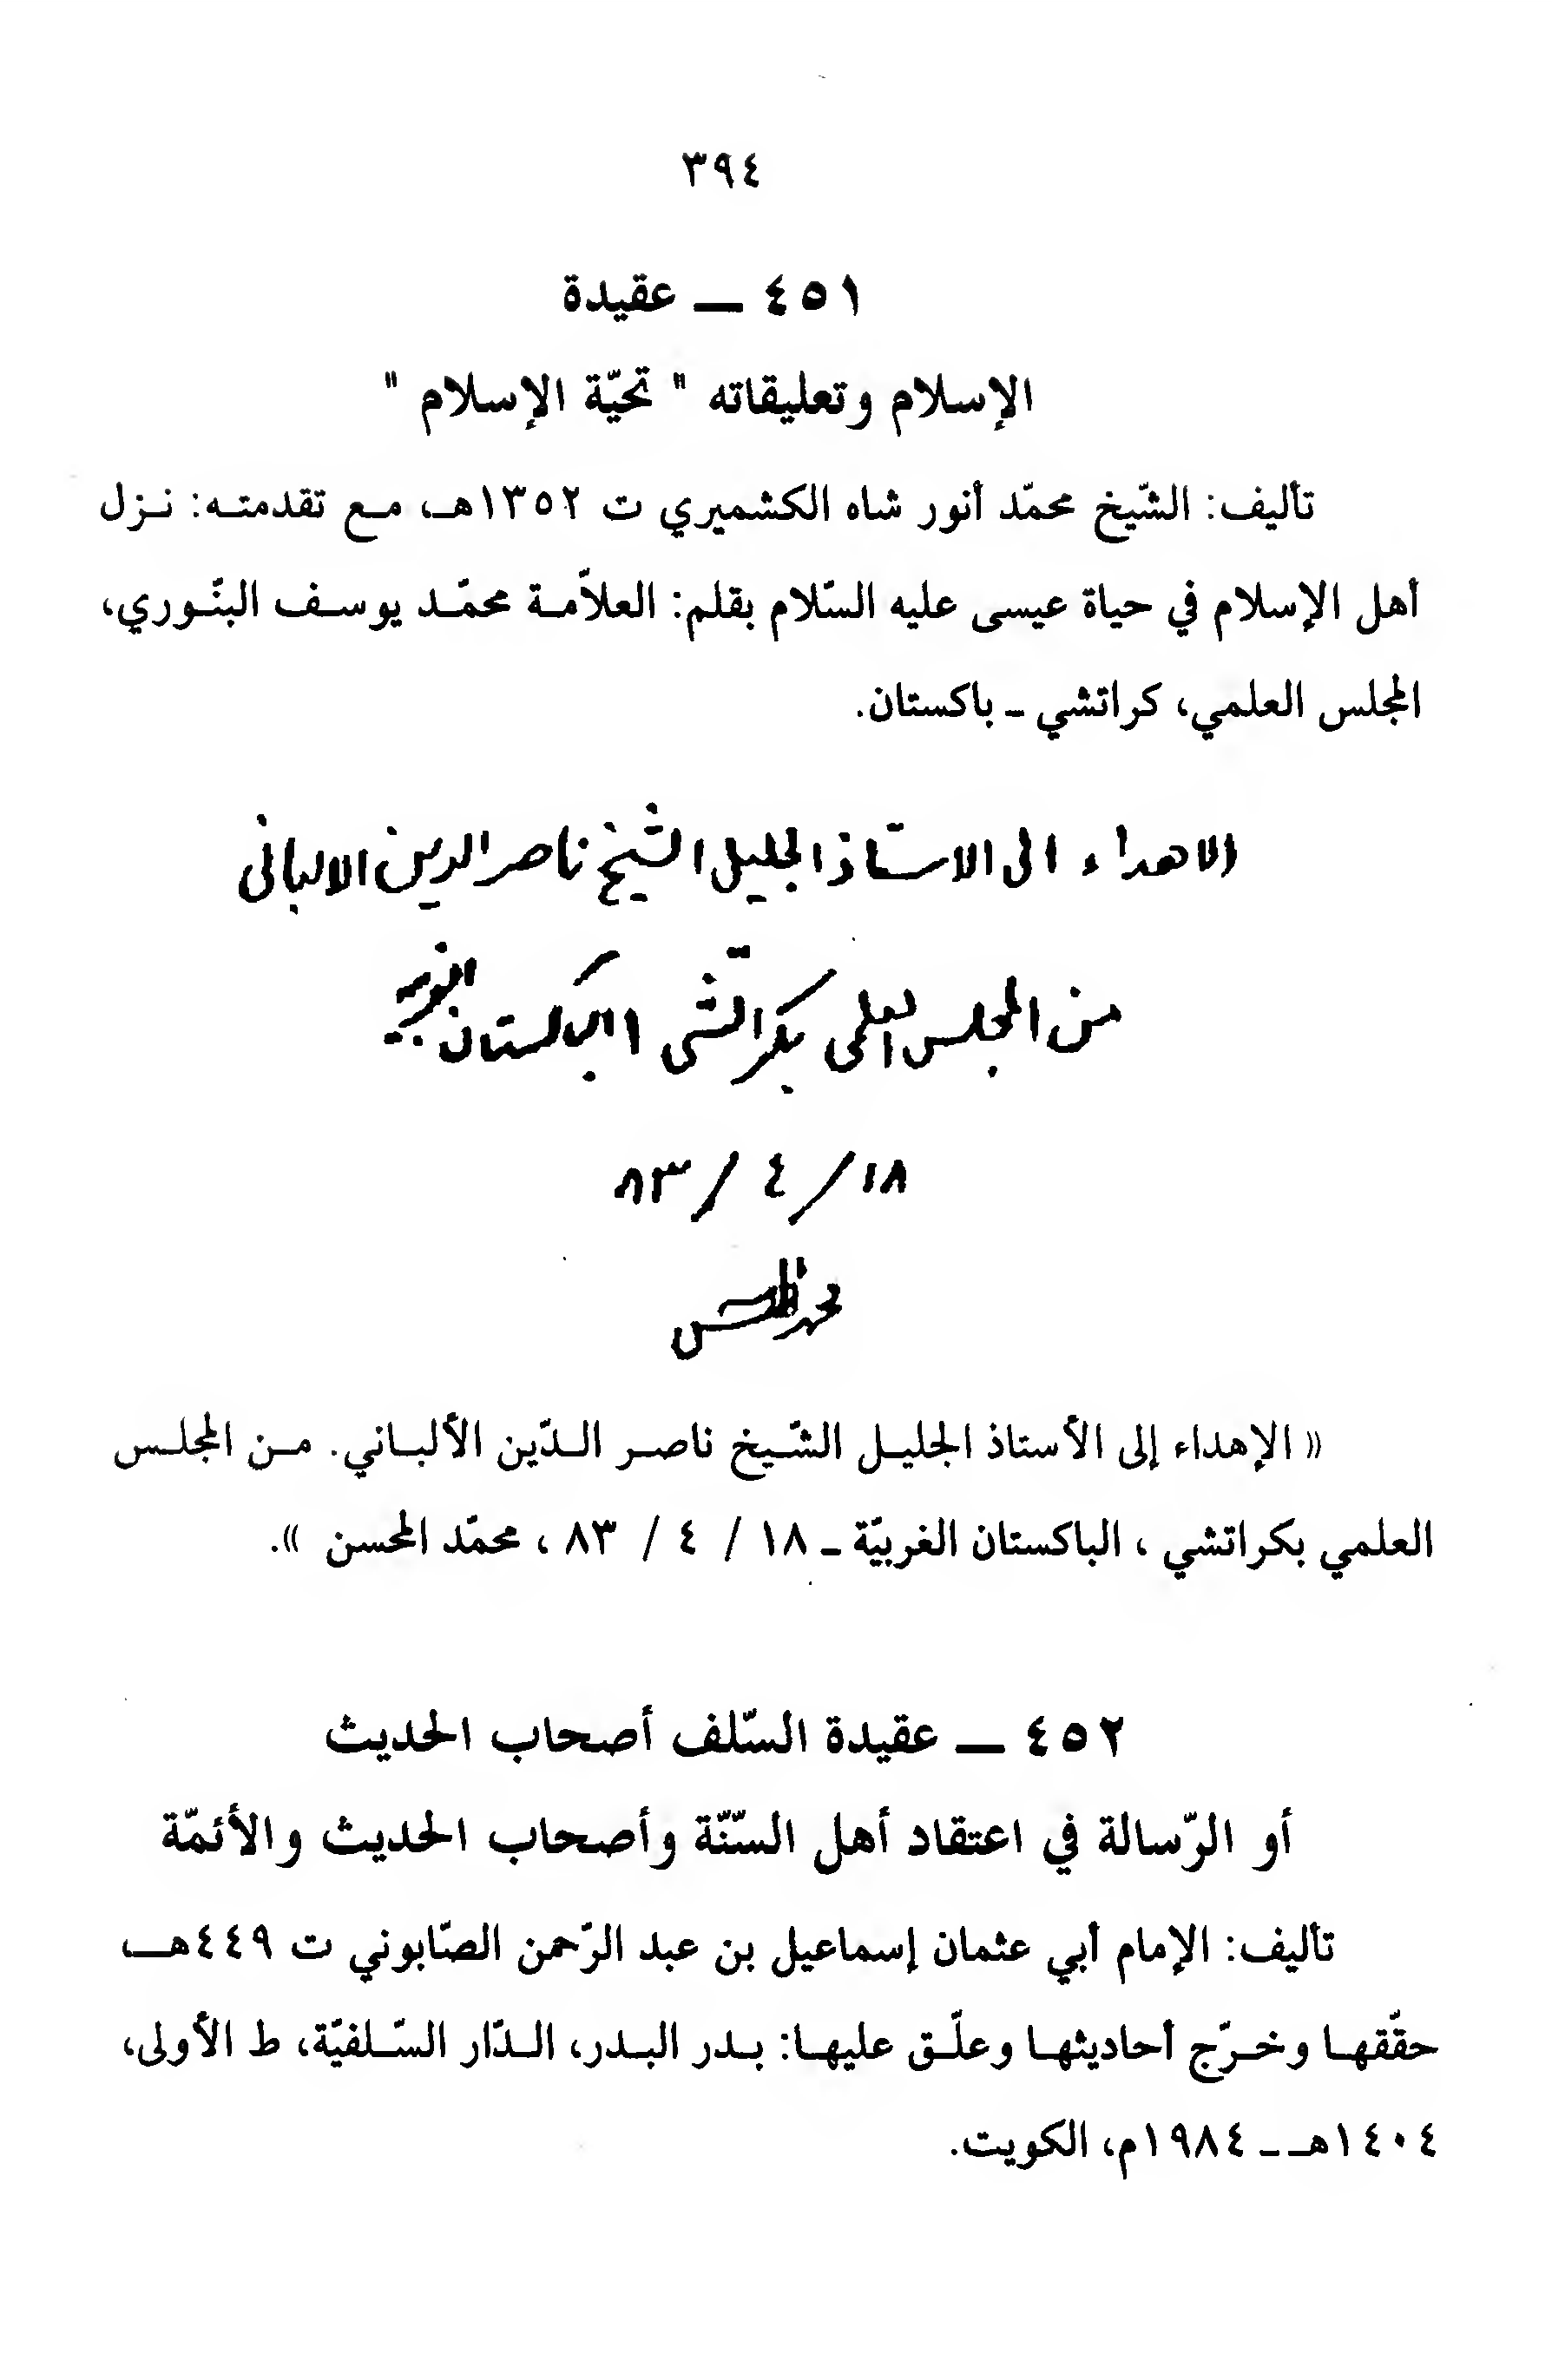 ٣٩٤
٤٥١ ــ عقيدة
الإسلام وتعليقاته " تحيّة الإسلام "
تأليف: الشّيخ محمّد أنور شاه الكشميري ت ١٣٥٢هـ، مـع تقدمتـه: نـزل
أهل الإسلام في حياة عيسى عليه السّلام بقلم: العلاّمـة محمّـد يوسـف البنّـوري،
المجلس العلمي، كراتشي ـ باكستان.
الاهداء الى الاستاذ الجليل الشيخ ناصر الدين الالبانى
من المجلس العلمى بكراتشى الباكستان الغربية
١٨ / ٤ / ٨٣
محمد
« الإهداء إلى الأستاذ الجليـل الشّـيخ ناصـر الـدّين الألبـاني. مـن المجلـس
العلمي بكراتشي ، الباكستان الغربيّة ـ ١٨ / ٤ / ٨٣ ، محمّد المحسن ».
٤٥٢ ــ عقيدة السّلف أصحاب الحديث
أو الرّسالة في اعتقاد أهل السّنّة وأصحاب الحديث والأئمّة
تأليف: الإمام أبي عثمان إسماعيل بن عبد الرّحمن الصّابوني ت ٤٤٩هـــ،
حقّقهـا وخـرّج أحاديثهـا وعلّـق عليهـا: بـدر البـدر، الـدّار السّـلفيّة، ط الأولى،
١٤٠٤هـ ـ ١٩٨٤م، الكويت.